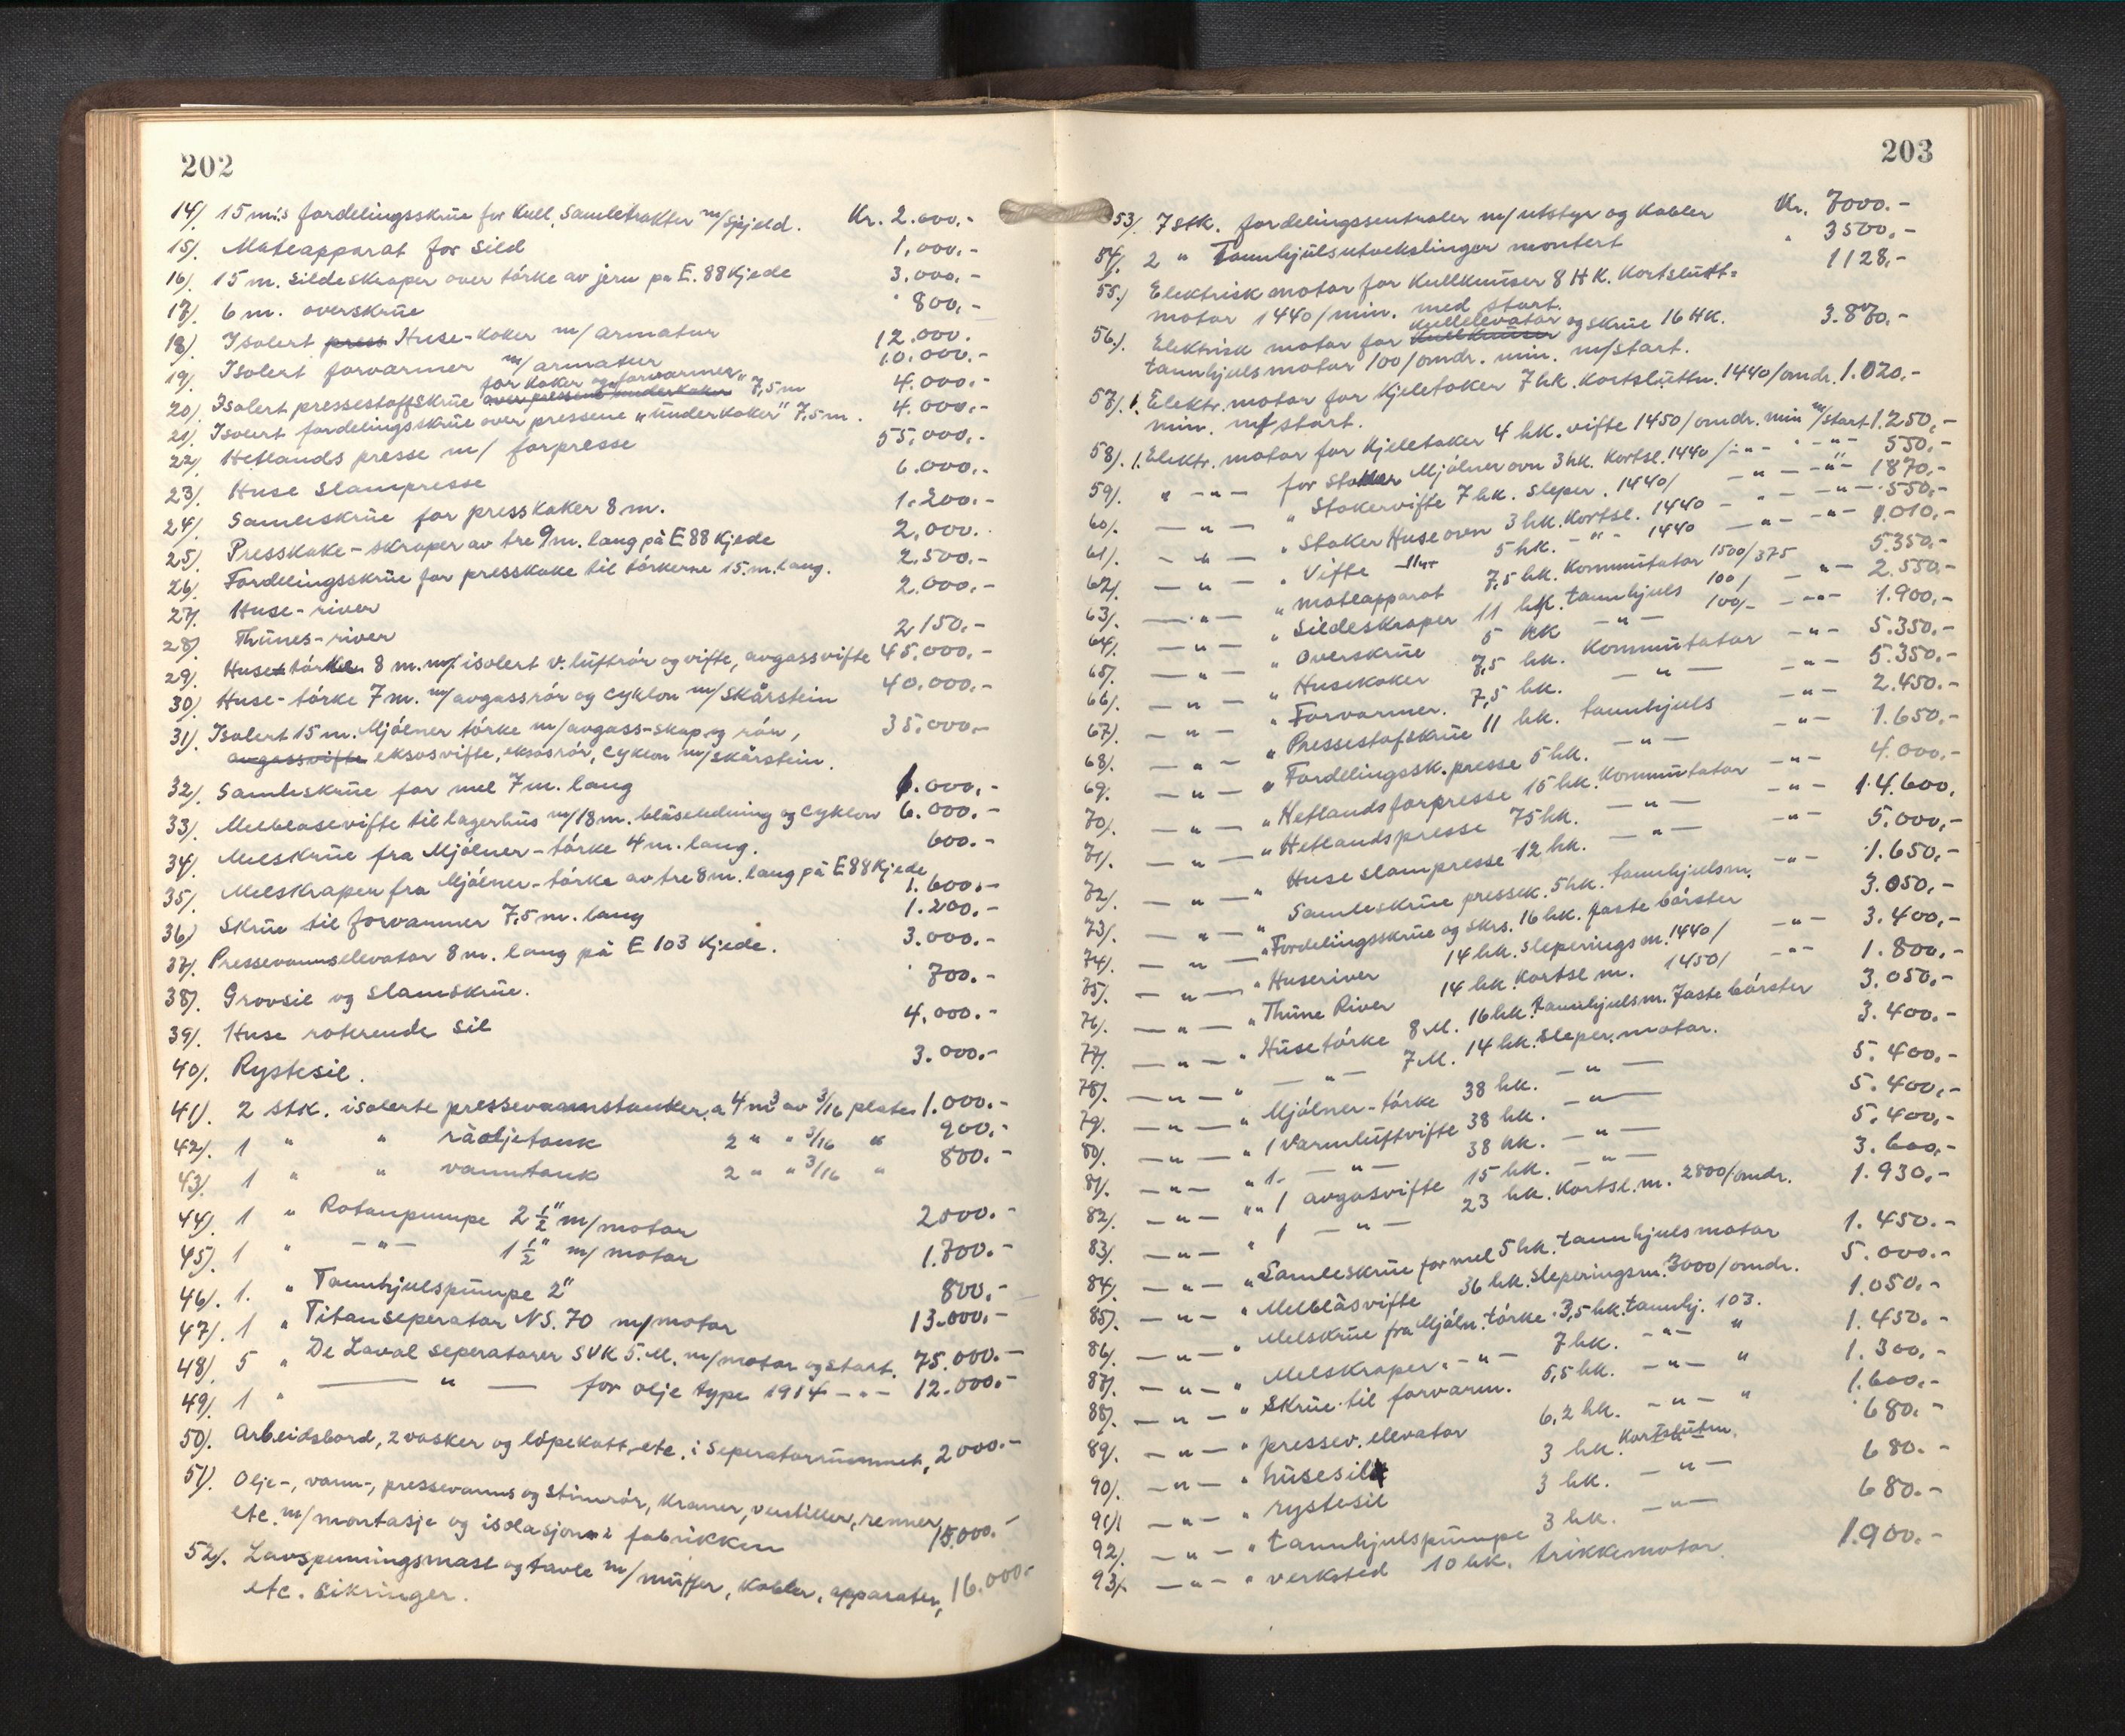 202
14). 15 m's fordelingsskrue for kull, samletrakter m/spjeld. Kr. 2.000.-
15). Mateapparat for sild 1.000.-
16). 15 m. sildeskraper over tørke av jern på E.88 kjede 3.000.-
17). 6 m. overskrue 800.-
18). Isolert press Huse-koker m/armatur 12.000.
19). Isolert forvarmer m/armatur 10.000.-
for koker og forvarmer
20). Isolert pressestoffskrue over pressene underkoker" 7,5 m 4.000.-
21). Isolert fordelingsskrue over pressene "underkoker" 7,5 m. 4.000.-
22). Hetlands presse m/ forpresse 55.000.-
23). Huse Slampresse 6.000.-
24). Samleskrue for presskaker 8 m. 1.200.-
25). Presskake-skraper av tre 9 m. lang på E 88 kjede 2.000.
26). Fordelingsskrue for presskake til tørkerne 15. m. lang. 2.500.-
27). Huse-river 2.000.-
28). Thunes-river 2150.-
29). Huse tørke 8 m. m/ isolert v. luftrør og vifte, avgassvifte 45.000.-
30). Huse-tørke 7 m. m/avgassrør og cyklon m/skårstein 40.000.-
31). Isolert 15 m. Mjølner tørke m/avgass-skap og rør, 35.000.-
avgassvifte eksosvifte, eksosrør, cyklon m/skårstein.
32). Samleskrue for mel 7 m. lang 1.000,-
33). Melblåsevifte til lagerhus m/18 m. blåseledning og cyklon 6.000.-
34). Melskrue fra Mjølner-tørke 4 m. lang. 600.-
35). Melskraper fra Mjølner-tørke av tre 8 m. lang på E 88 kjede 1.600.-
36) Skrue til forvarmer 7,5 m. lang 1.200.-
37). Pressevannselevator 8 m. lang på E 103 kjede. 3.000.-
38). Grovsil og slamskrue. 700.-
39). Huse roterende sil 4.000.-
40). Rystesil. 3.000.-
41). 2 stk. isolerte pressevannstanker a 4 m3 av 3/16 plater 1.000.-
42). 1 " " råoljetank 2 " " 3/16 " 900.-
43). 1 " " vanntank 2 " " 3/16 " 800.-
44). 1 " Rotanpumpe 2 1/2" m/motor 2000.-
45). 1 " -"- 1 1/2" m/motor 1.700.-
46). 1. " Tannhjulspumpe 2" 800.-
47). 1 " Titanseperator NS. 70 m/motor 13.000.-
48). 5 " De Laval seperatorer SVK 5. M. m/motor og start. 75.000.-
49). 1 " — " — for olje type 1914 -"- 12.000.-
50). Arbeidsbord, 2 vasker og løpekatt, etc. i Seperatorrummet, 2000.-
51). Olje-, vann-, pressevanns og stimrør, kraner, ventiller, renner,
etc. m/montasje og isolasjon i fabrikken 15000.-
52). Lavspenningsmast og tavle m/muffer, kabler, apparater, 16.000.-
etc. sikringer.
203
53). 7 stk. fordelingssentraler m/utstyr og kabler Kr. 7000.-
54). 2 " Tannhjulsutvekslinger montert " 3500,-
55.) Elektrisk motor for kullknuser 8 HK. kortslutt= 1128,-
motor 1440/min. med start.
kullelevator
56.). Elektrisk motor for kullknuser og skrue 16 HK. 3.870.-
tannhjulsmotor 100/omdr. min. m/start.
57). 1. Elektr. motor for kjeletaker 7 hk. kortsluttn. 1440/omdr. 1.020.-
min. m/start.
58). 1. Elektr. motor for kjeletaker 4 hk. vifte 1450/omdr. min m/start 1.250,-
59). " -"- for stoker Mjølner ovn 3 hk. kortsl. 1440/ -"- -"- 550,-
60). — " — " Stokervifte 7 hk. sleper. 1440/ -"- -"- 1870.-
61). — " — " Stoker Huse ovn 3 hk. kortsl. 1440 - " - -"- 550,-
62). — " — " Vifte -"- 5 hk. -"- 1440 -"- -"- 1.010,-
63). — " — " mateapparat 7,5 hk. kommutator 1500/375 5.350.-
64). — " — " Sildeskraper 11 hk. tannhjuls 100/ -"- 2.550.-
65). — " — " overskrue 5 hk -"- 100/- -"- 1.900,-
66). — " — " Husekoker 7,5 hk. kommutator -"- 5.350.-
67). — " — " Forvarmer. 7,5 hk. — " — -"- 5.350.-
68). — " — " Pressestofskrue 11 hk. tannhjuls -"- 2.450.-
69. — " — " Fordelingssk. presse 5 hk. — " — -"- 1.650,-
70). — " — " Hetlandsforpresse 15 hk. kommutator -"- 4.000,-
71). — " — " Hetlandspresse 75 hk. — " — -"- 14.600,
72). — " — " Huse slampresse 12 hk. — " — -"- 5.000,-
73). — " — " Samleskrue pressk. 5 hk. tannhjulsm. -"- 1.650,-
74). — " — " Fordelingsskrue og skrs. 16 hk. faste børster 3.050,-
75). — " — " Huseriver 14 hk. sleperingsm. 1440/ -"- 3.400,-
76). — " — " Thune River 14 hk kortsl m. 1450/ -"- 1.800,-
77). — " — " Huse tørke 8 M. 16 hk. tannhjulsm. faste børster 3.050,-
78). — " — " — " — 7 M. 14 hk. sleper. motor. 3.400.-
79). — " — " Mjølner-tørke 38 hk. — " — 5.400,-
80). — " — " 1 varmluftvifte 38 hk. — " — 5.400,-
81). — " — " 1. — " — 38 hk. — " — 5.400,-
82). — " — " 1 avgasvifte 15 hk. — " — 3.600,-
83). — " — " 1 — " — 23 hk. kortsl. m. 2800/omdr. 1.930,-
84). — " — " Samleskrue for mel 5 hk. tannhjulsmotor 1.450.-
85). — " — " Melblåsvifte 36 hk. sleperingsm. 3000/omdr. 5.000.-
86). — " — " Melskrue fra Mjøln. tørke. 3,5 hk. tannhj. 103. 1.050.-
87). — " — " Melskraper. -"- 7 hk. -"- " 1.450.-
88). — " — " Skrue til forvarm. 5,5 hk. -"- " 1.300,-
89). — " — " pressev. elevator 6,2 hk. -"- " 1.600.-
90). — " — " husesil 3 hk. kortslutn. 680.-
91). — " — " rystesil 3 hk. — " — 680.-
92). — " — " tannhjulspumpe 3 hk. — " — 680.-
93). — " — " verksted 10 hk. trikkemotor. 1.900.-